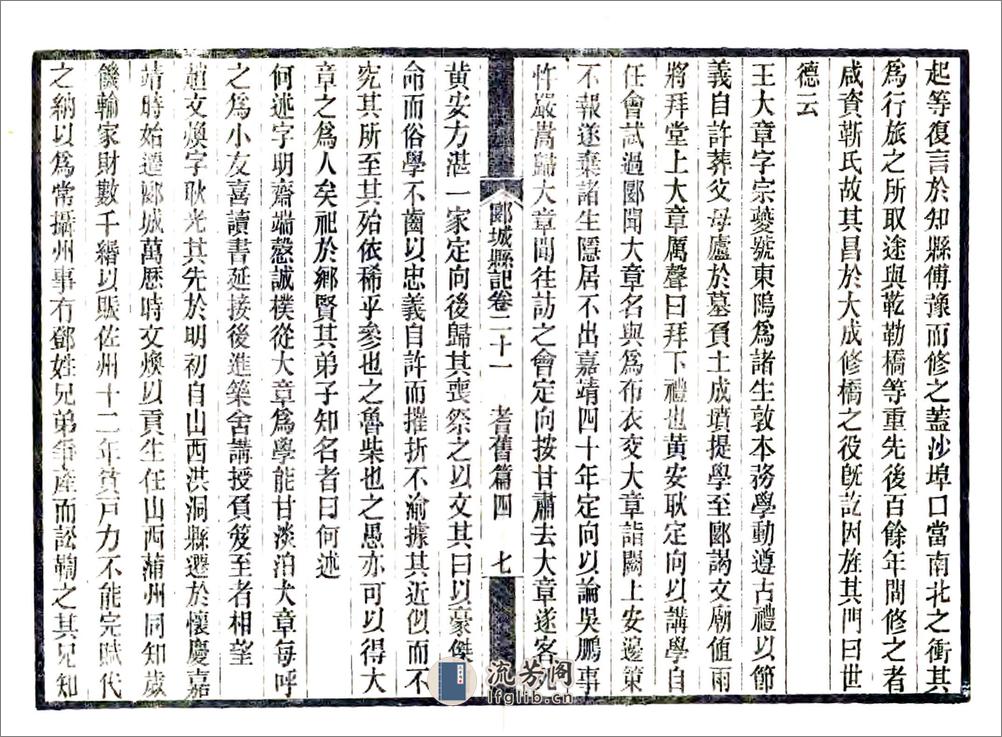 起等復言於知縣傅豫而修之蓋沙埠口當南北之衝其
爲行旅之所取途與乾勒橋等重先後百餘年間修之者
咸資靳氏故其昌於大成修橋之役旣訖因旌其門曰世
德云
王大章字宗夔號東隖爲諸生敦本務學動遵古禮以節
義自許葬父母廬於墓負土成墳提學至郾謁文廟値雨
將拜堂上大章厲聲曰拜下禮也黃安耿定向以講學自
任會試過郾聞大章名與爲布衣交大章詣闕上安邊策
不報遂棄諸生隱居不出嘉靖四十年定向以論吳鵬事
忤嚴嵩歸大章聞往訪之會定向按甘肅去大章遂客
郾城縣記卷二十一 耆舊篇四 七
黃安方湛一家定向後歸其喪祭之以文其曰以豪傑
命而俗學不齒以忠義自許而摧折不渝據其近似而不
究其所至其殆依稀乎參也之魯柴也之愚亦可以得大
章之爲人矣祀於鄕賢其弟子知名者曰何述
何述字明齋端慤誠樸從大章爲學能甘淡泊大章每呼
之爲小友喜讀書延接後進築舍講授負笈至者相望
趙文煥字耿光其先於明初自山西洪洞縣遷於懷慶嘉
靖時始遷郾城萬歷時文煥以貢生任山西蒲州同知歲
饑輸家財數千緡以賑佐州十二年貧戸力不能完賦代
之納以爲常攝州事有鄧姓兄弟爭產而訟鞫之其兄知
流芳阁
lfglib.cn